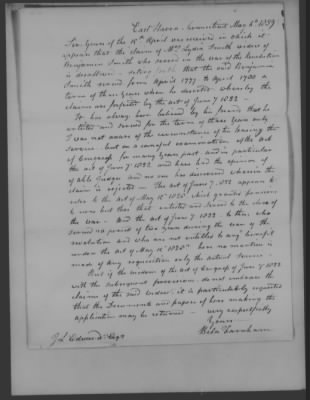 East Haven, Connecticut May 6th 1839
Sir, Yours of the 15th April was received in which it
appears that the claim of Mrs Lydia Smith widow of
Benjamin Smith who served in the war of the Revolution
is disallowed - stating that the said Benjamin
Smith served from April 1777 to April 1780 a
term of three years when he deserted whereby the
claim was forfeited by the act of June 7 1832 -
It has always been believed by his friends that he
enlisted and served for the term of three years only
I was not aware of the circumstance of his leaving the
service - but on a careful examination of the Acts
of Congress for many years past and in particular
the act of June 7 1832 and have had the opinion of
able Judges and no one has discovered wherein the
claim is rejected - The act of June 7, 1832 appears to
refer to the Act of May 15th 1828 which granted pensions
to none but those that enlisted and served to the close of
the war - And the act of June 7 1832 to those who
served no period of two years during the war of the
revolution and who are not entitled to any benefit
under the act of May 15th 1828 - here no mention is
made of any requisition only the actual service -
But if the wisdom of the Act of Congress of June 7 1832
with the subsequent provisions do not embrace the
claims of the said widow, it is particularly requested
that the Documents and papers of hers making the
application may be returned - very respectfully
Yours
Bela Farnham
J L Edwards Esqr